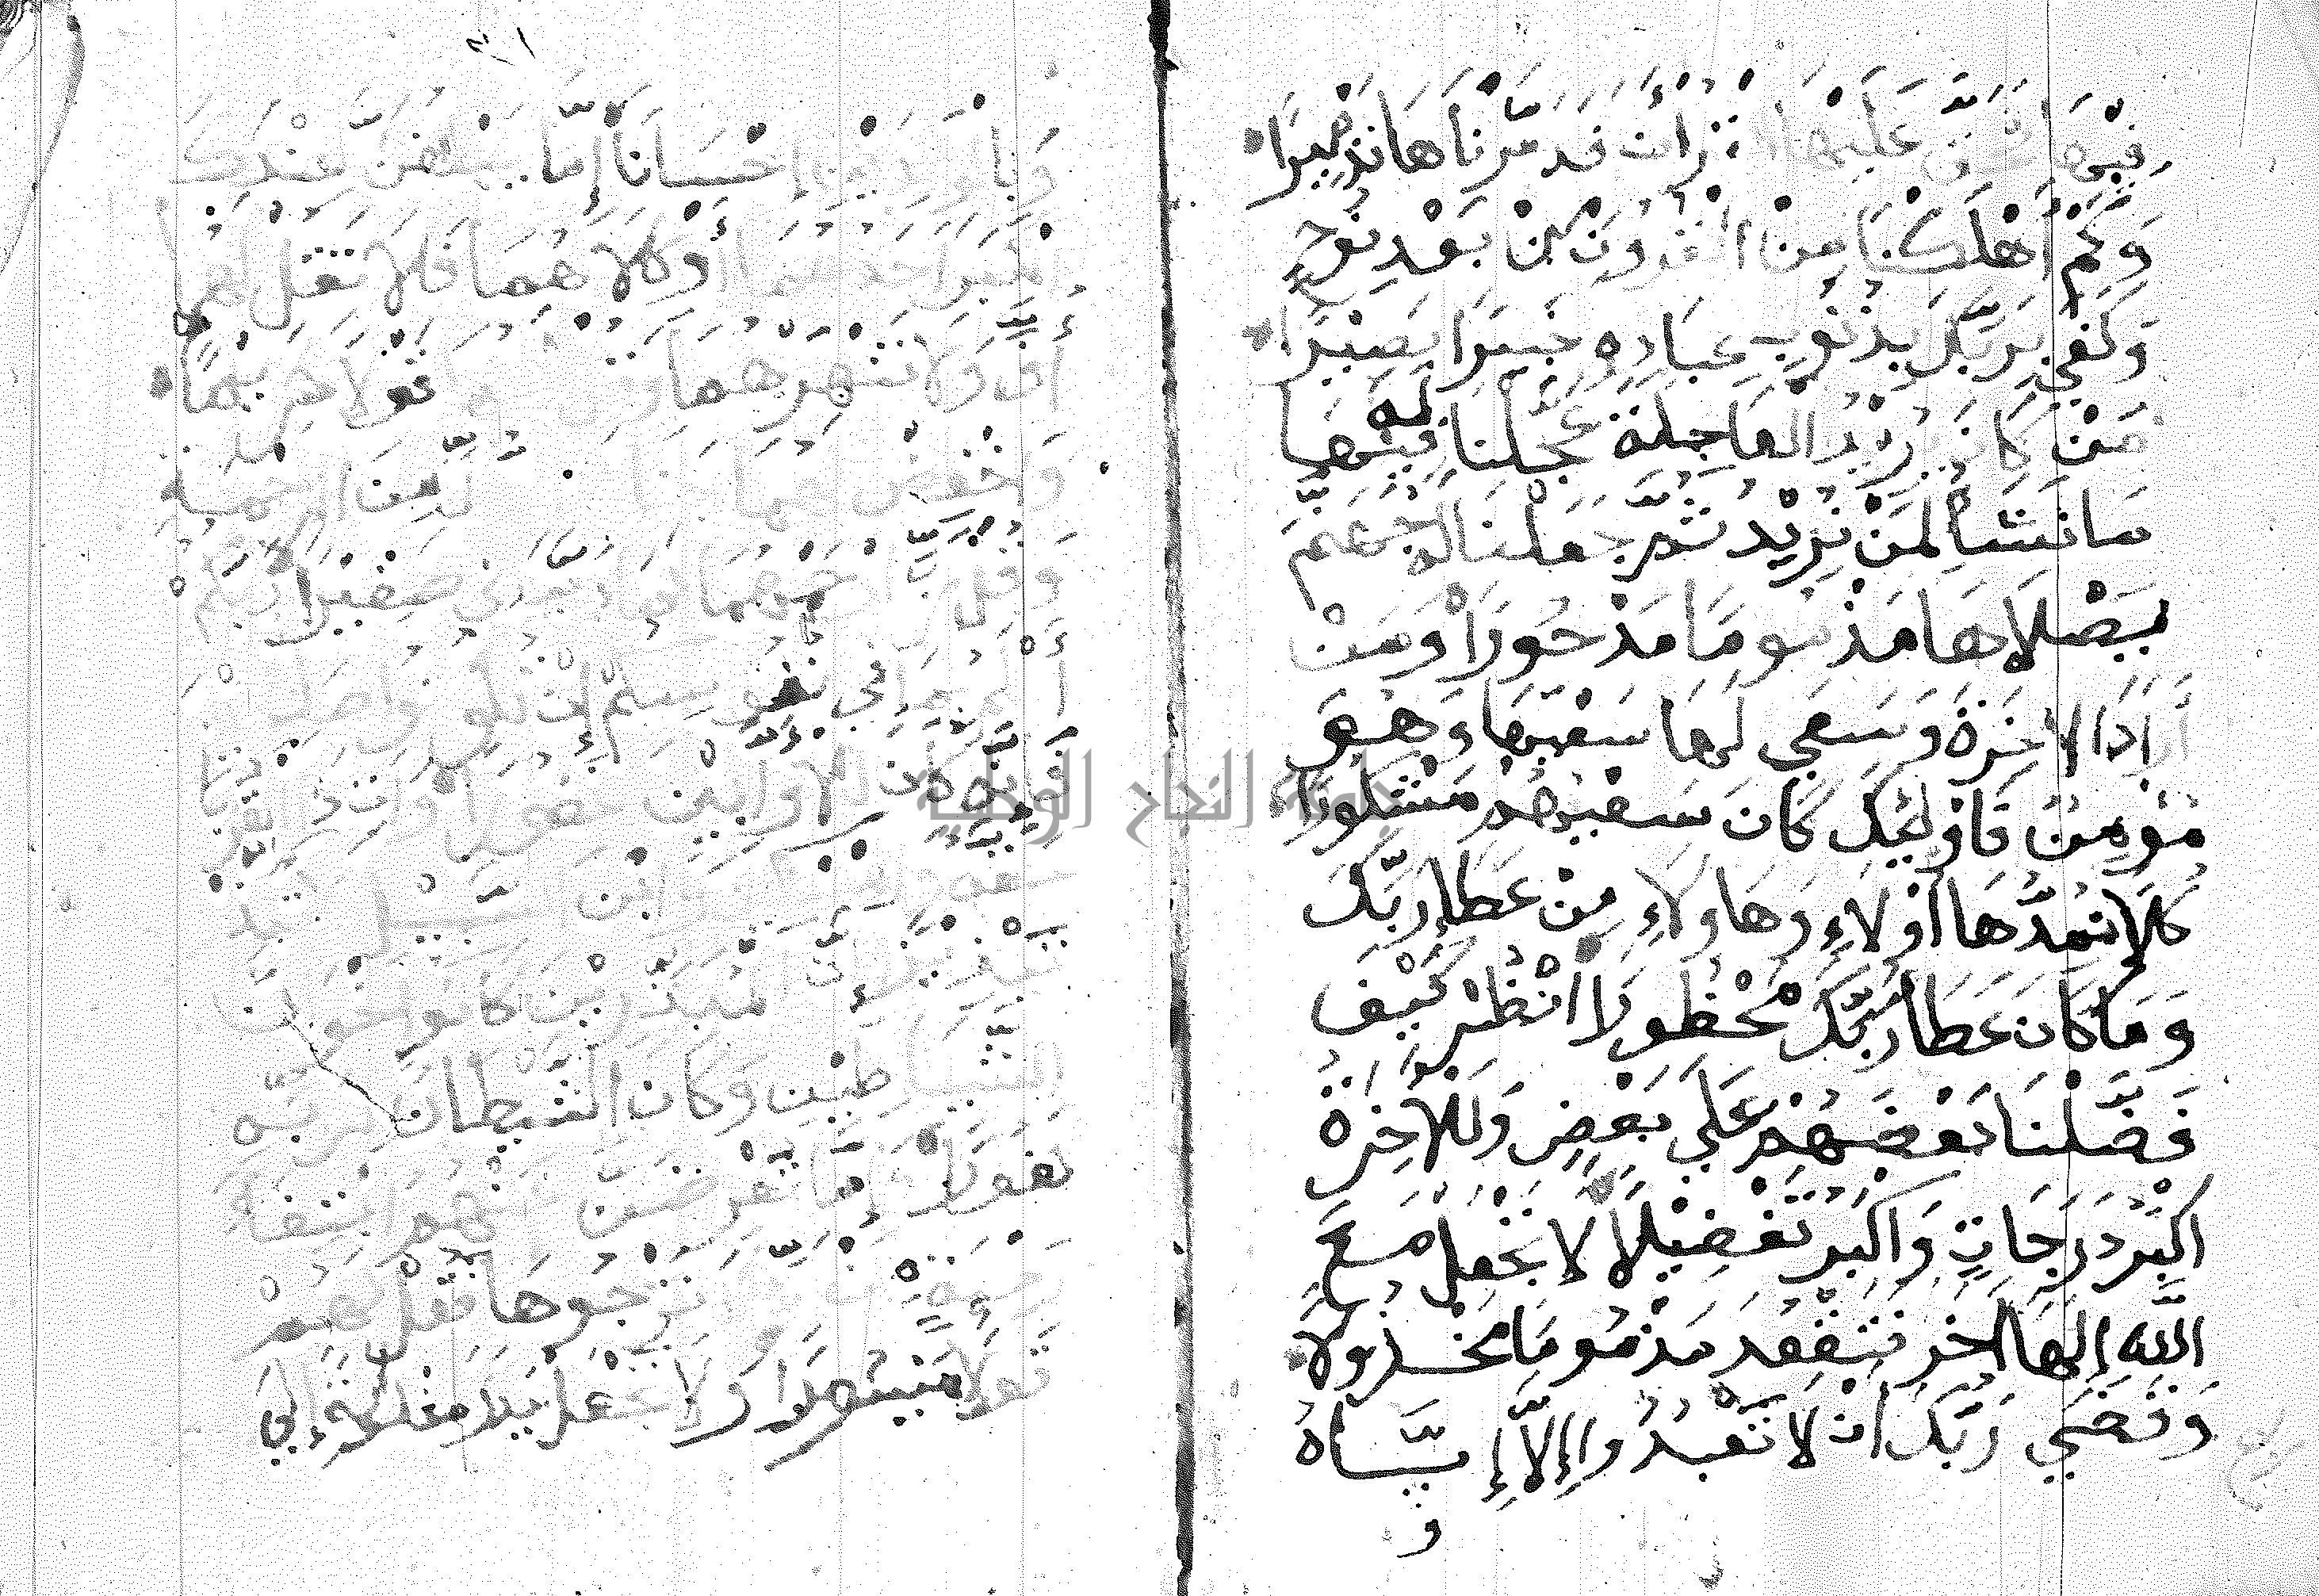 فِيْهَا فَحَقَّ عَلَيْهَا القزاٰت فدمّرْنَاهَا تَذْمِيْرًا
وَكَمْ أَهْلَكْنَا مِنَ القُرُوْنِ مِنْ بَعْدِ نُوْحٍ
وَكَفَي بِرَبِّكَ بِذُنُوْبِ عِبَادِهِ خَبِيْرًا بَصِيْرًا
مَنْ كَانَ يُرِيْدُ العَاجِلَةَ عَجَّلْنَا لَهُ فِيْهَا
مَا نَشَأُ لِمَنْ نُرِيْدُ ثُمَّ جَعَلْنَا لَهُ جَهَنَّمَ
يَصْلَاهَا مَذْمُومًا مَدْحُورًا وَمَنْ
أَرَادَ الاٰخِرَةَ وَسَعَي لَهَا سَعْيَهَا وَهُوَ
مُؤْمِنٌ فَاوْلَئِكَ كَانَ سَعْيُهُمْ مَشْكُورًا
كُلًّا نُمِدُّ هَااُوْلَاءِ وَهَاوُلَاءِ مِنْ عَطَاءِ رَبِّكَ
وَمَا كَانَ عَطَاءُ رَبِّكَ مَحْظُورًا انْظُرْ كَيْفَ
فَضَّلْنَا بَعْضَهُمْ عَلَي بَعْضٍ وَلَلْاٰخِرَةُ
اكْبَرُ دَرَجَاتٍ وَاكْبَرُ تَفْضِيْلًا لَا تَجْعَلْ مَعَ
اللّهِ إِلَهًا اٰخَرَ فَتَقْعُدَ مَذْمُومًا مَخْذُولًا
وَقَضَي رَبُّكَ اَنْ لَا تَعْبُدُوا إِلَّا إِيَّاهُ
و
٣١
وَبِالْوَالِدَيْنِ إِحْسَانًا إِمَّا يَبْلُغَنَّ عِنْدَكَ
الْكِبَرَ احَدُهُمَا أَوْ كِلَاهُمَا فَلَا تَقُلْ لَهُمَا
أُفٍّ وَلَا تَنْهَرْهُمَا وَقُلْ لَهُمَا قَوْلًا كَرِيْمًا
وَاخْفِضْ لَهُمَا جَنَاحَ الذُّلِّ مِنَ الرَّحْمَةِ
وَقُلْ رَبِّ ارْحَمْهُمَا كَمَا رَبَّيَانِي صَغِيْرًا رَبُّكُمْ
أَعْلَمُ بِمَا فِي نُفُوسِكُمْ إِنْ تَكُونُوا صَالِحِيْنَ
فَإِنَّهُ كَانَ لِلاوَّابِيْنَ غَفُوْرًا وَاٰتِ ذَا القُرْبَا
حَقَّهُ وَالمِسْكِيْنَ وَابْنَ السَّبِيْلِ وَلَا تُبَذِّرْ
تَبْذِيْرًا إِنَّ المُبَذِّرِيْنَ كَانُوا اخْوَانَ
الشَّيَاطِيْنِ وَكَانَ الشَّيْطَانُ لِرَبِّهِ
كَفُورًا وَإِمَّا تُعْرِضَنَّ عَنْهُمُ ابْتِغَاءَ
رَحْمَةٍ مِنْ رَبِّكَ تَرْجُوهَا فَقُلْ لَهُمْ
قَوْلًا مَيْسُورًا وَلَا تَجْعَلْ يَدَكَ مَغْلُولَةً إِلَي
جامعة النجاح الوطنية